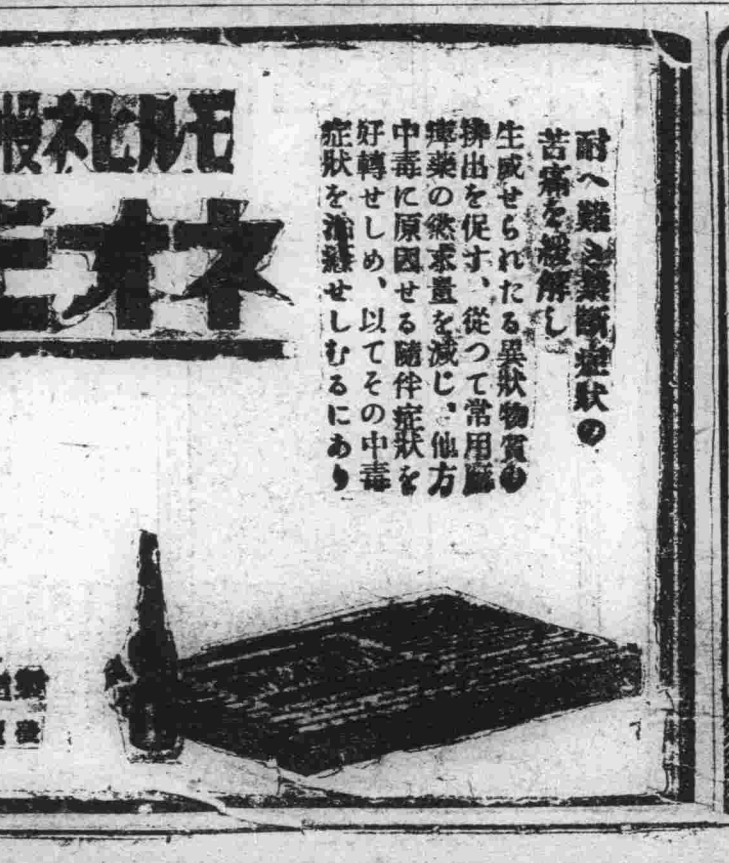 耐へ難き禁斷症狀の
苦痛を緩解し
生成せられたる異狀物質の
排出を促す、從つて常用麻
痺藥の慾求量を減じ、他方
中毒に原因せる隨伴症狀を
好轉せしめ、以てその中毒
症狀を治癒せしむるにあり
モルヒネ慢
ネオモ